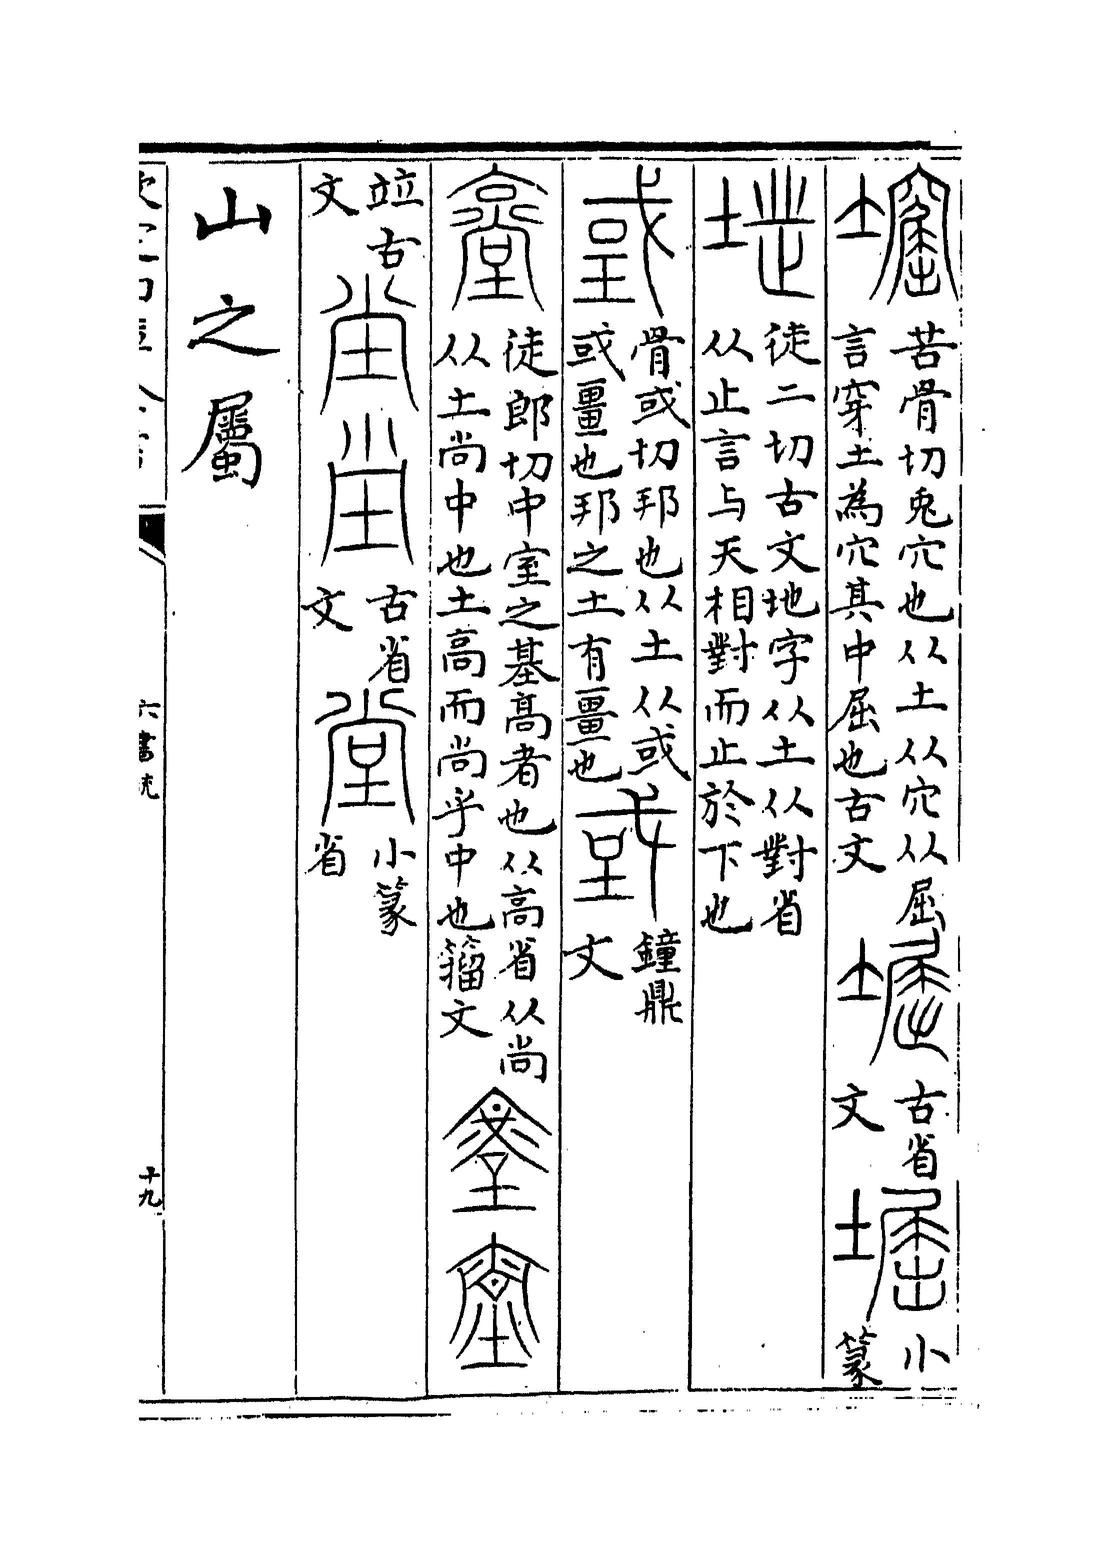 苦骨切兎穴也从土从穴从屈
言穿土為穴其中屈也古文
古省
文
小
篆
徒二切古文地字从土从對省
从止言与天相對而止於下也
骨或切邦也从土从或
或畺也邦之土有畺也
鐘鼎
文
徒郎切中室之基高者也从高省从尚
从土尚中也土高而尚乎中也籀文
竝古
文
古省
文
小篆
省
山之屬
六書統
十九